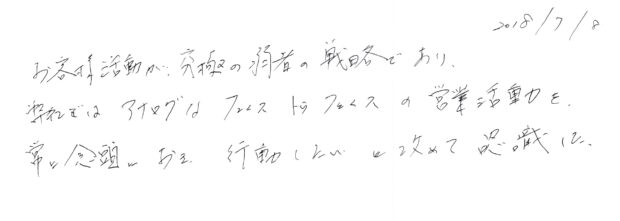 2018/7/8
お客様活動が、究極の弱者の戦略であり、
アナログなフェイス to フェイスの営業活動を、
常に念頭におき、行動したいと改めて認識した。